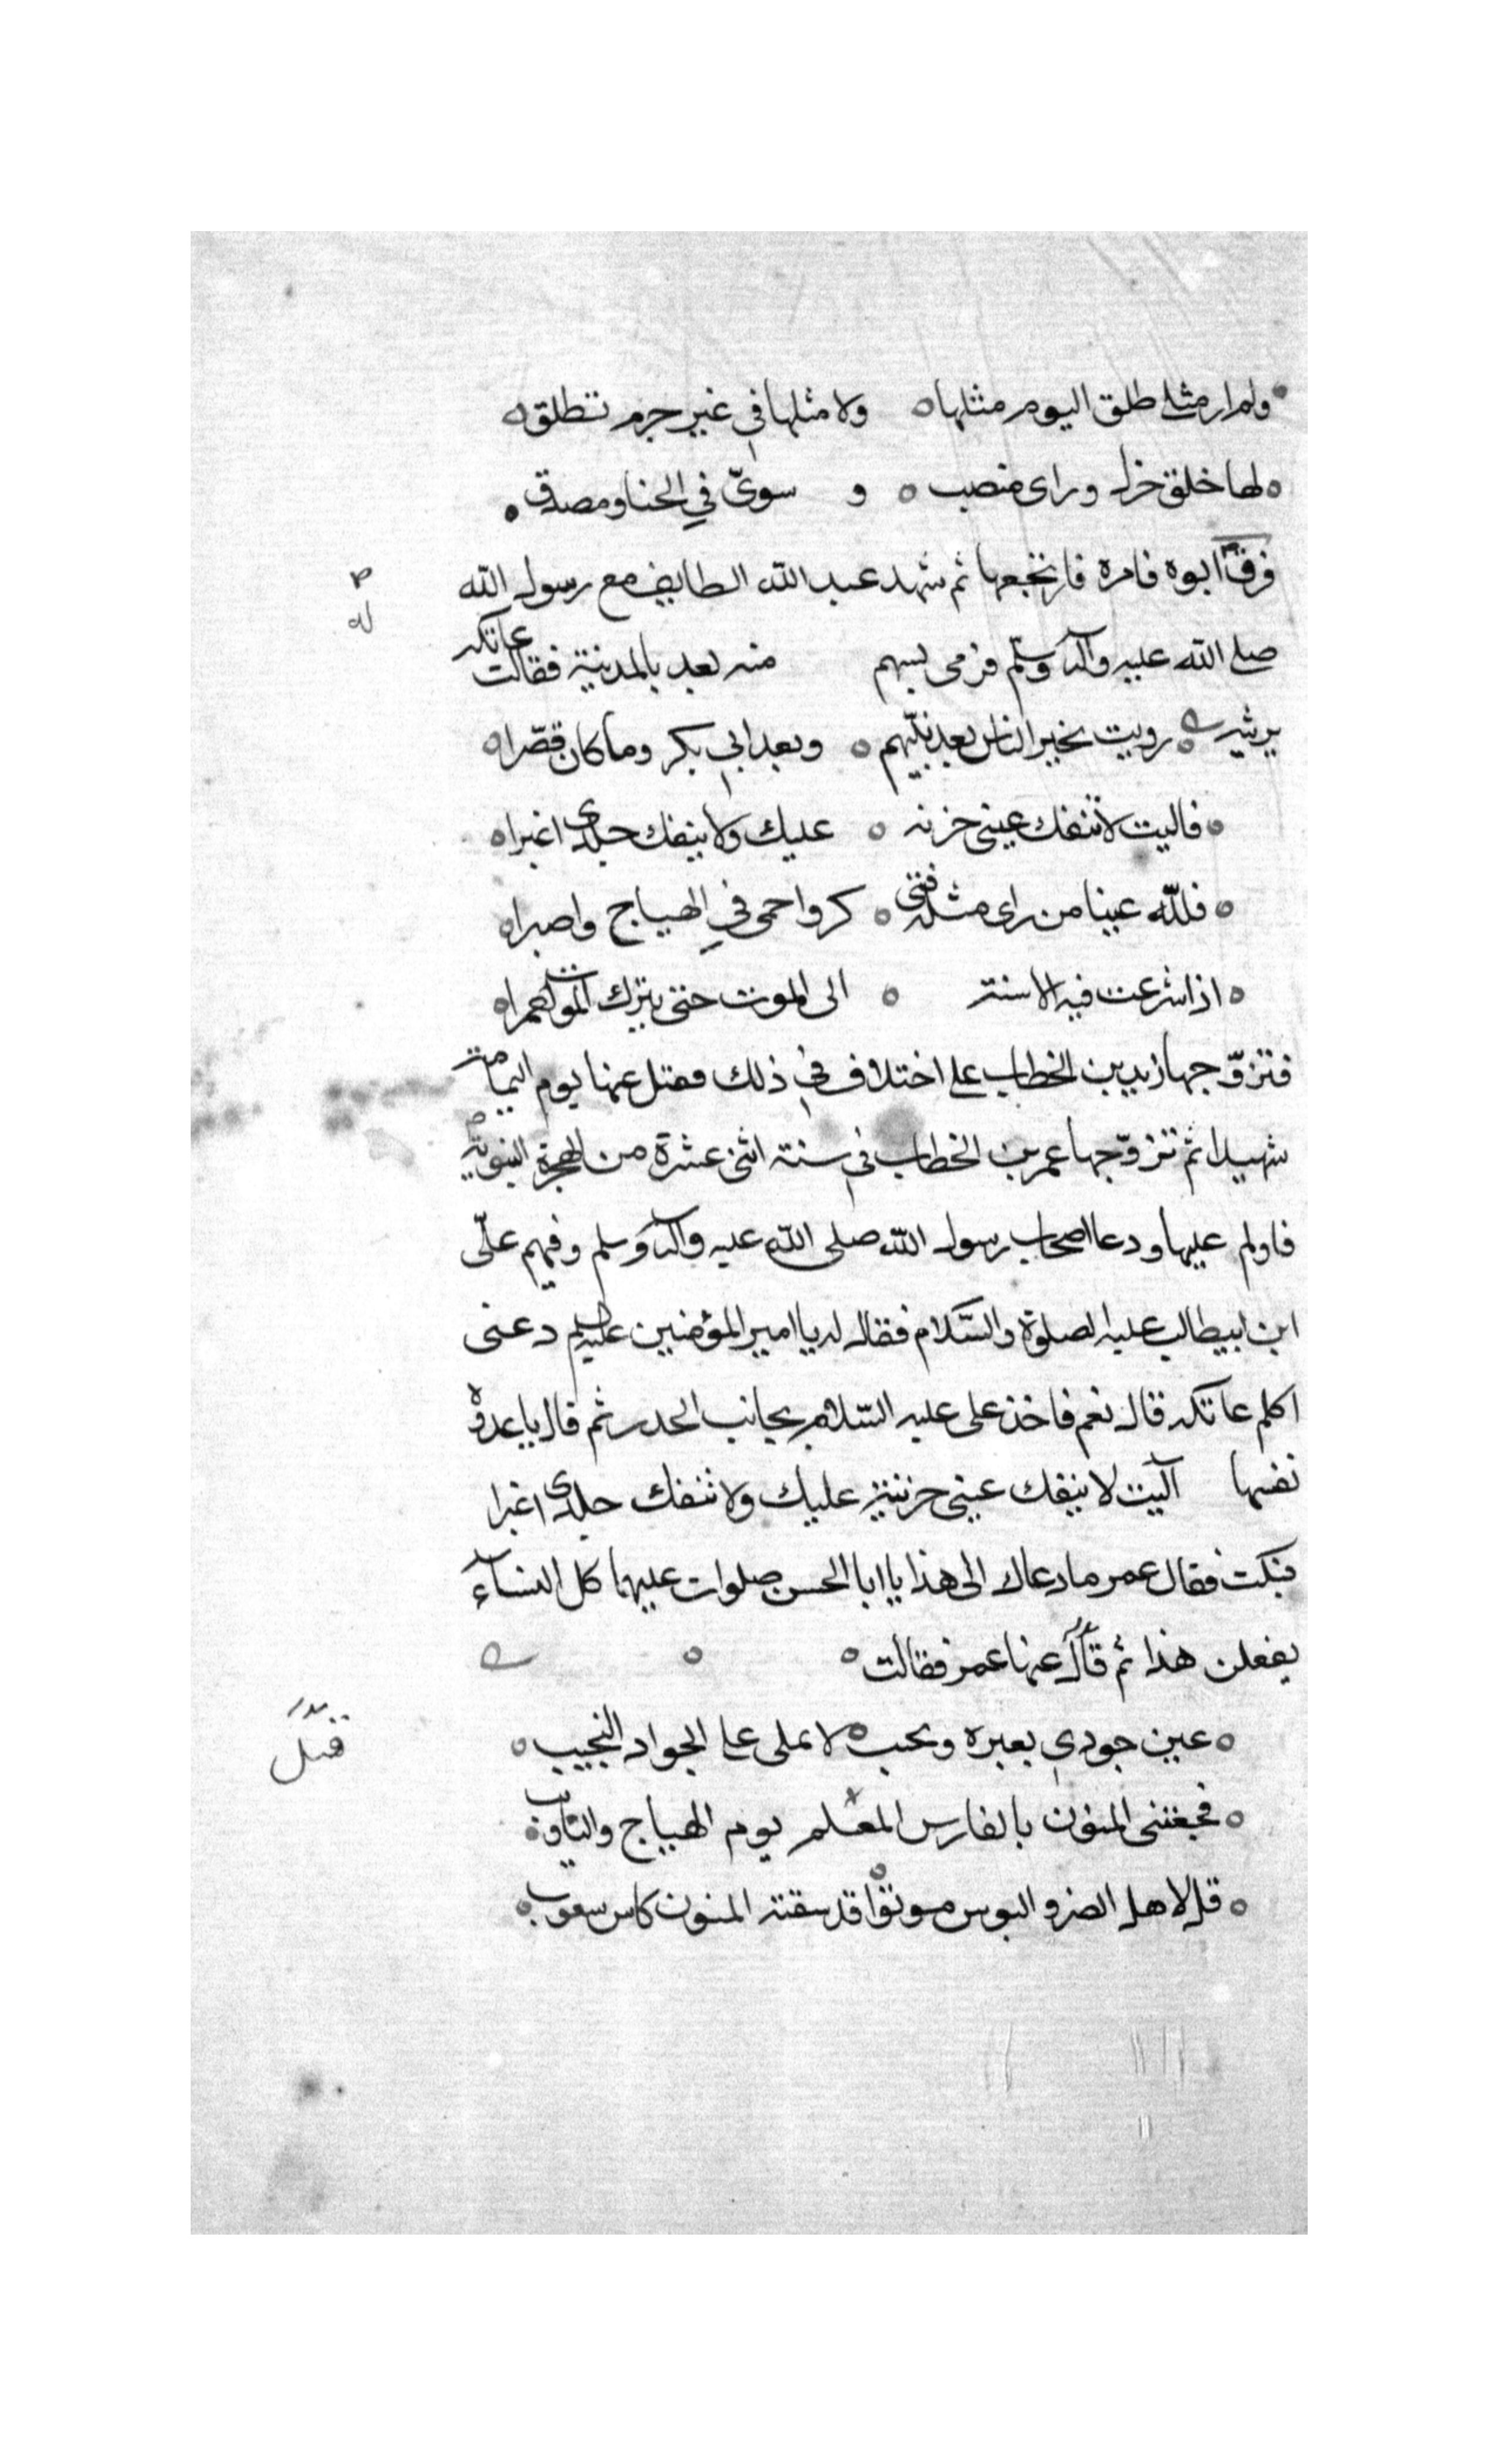 ولم ار مثلي طلق اليوم مثلها ولا مثلها في غير جرم تطلق
لها خلق جزل وراى منصب و سوىّ في الحنا ومصدق
فرقّ ابوه فامره فارتجعها ثم شهد عبد الله الطايف مع رسول الله
صلى الله عليه وآله وسلم فرمى بسهم منه بعد بالمدينة فقالت عاتكه
ترثيه رويت بخير الناس بعد نبيّهم وبعد ابي بكر وما كان قصّرا
فاليت لا تنفك عينى حزنه عليك ولا ينفك جلدى اغبرا
فللّه عينا من راى مثله فتى كر واحمى في الهياج واصبرا
اذا شرعت فيه الاسنه الى الموت حتى يترك الموت احمرا
فتزوّجها زيد بن الخطاب على اختلاف في ذلك فقتل عنها يوم اليمامة
شهيدا ثم تزوّجها عمر بن الخطاب في سنة اثنى عشرة من الهجرة النبوية
فاولم عليها ودعا اصحاب رسول الله صلى الله عليه وآله وسلم وفيهم علّى
ابن ابيطالب عليه الصلوة والسّلام فقال له يا امير المؤمنين دعنى
اكلم عاتكه قال نعم فاخذ على عليه السّلام بجانب الخدر ثم قال يا عدوة
نفسها آليت لا ينفك عينى حزينة عليك ولا تنفك جلدى اغبرا
فبكت فقال عمر ما دعاك الى هذا يا ابا الحسن صلوات عليهما كل النسآء
يفعلن هذا ثم قال عنها عمر فقالت
قتّل
عين جودي بعبره ونحب لا تملى على الجواد النجيب
فجعتنى المنون بالفارس المعلم يوم الهياج والتاويب
قل لاهل الضر والبوس موتوا قد سقته المنون كاس سعوب